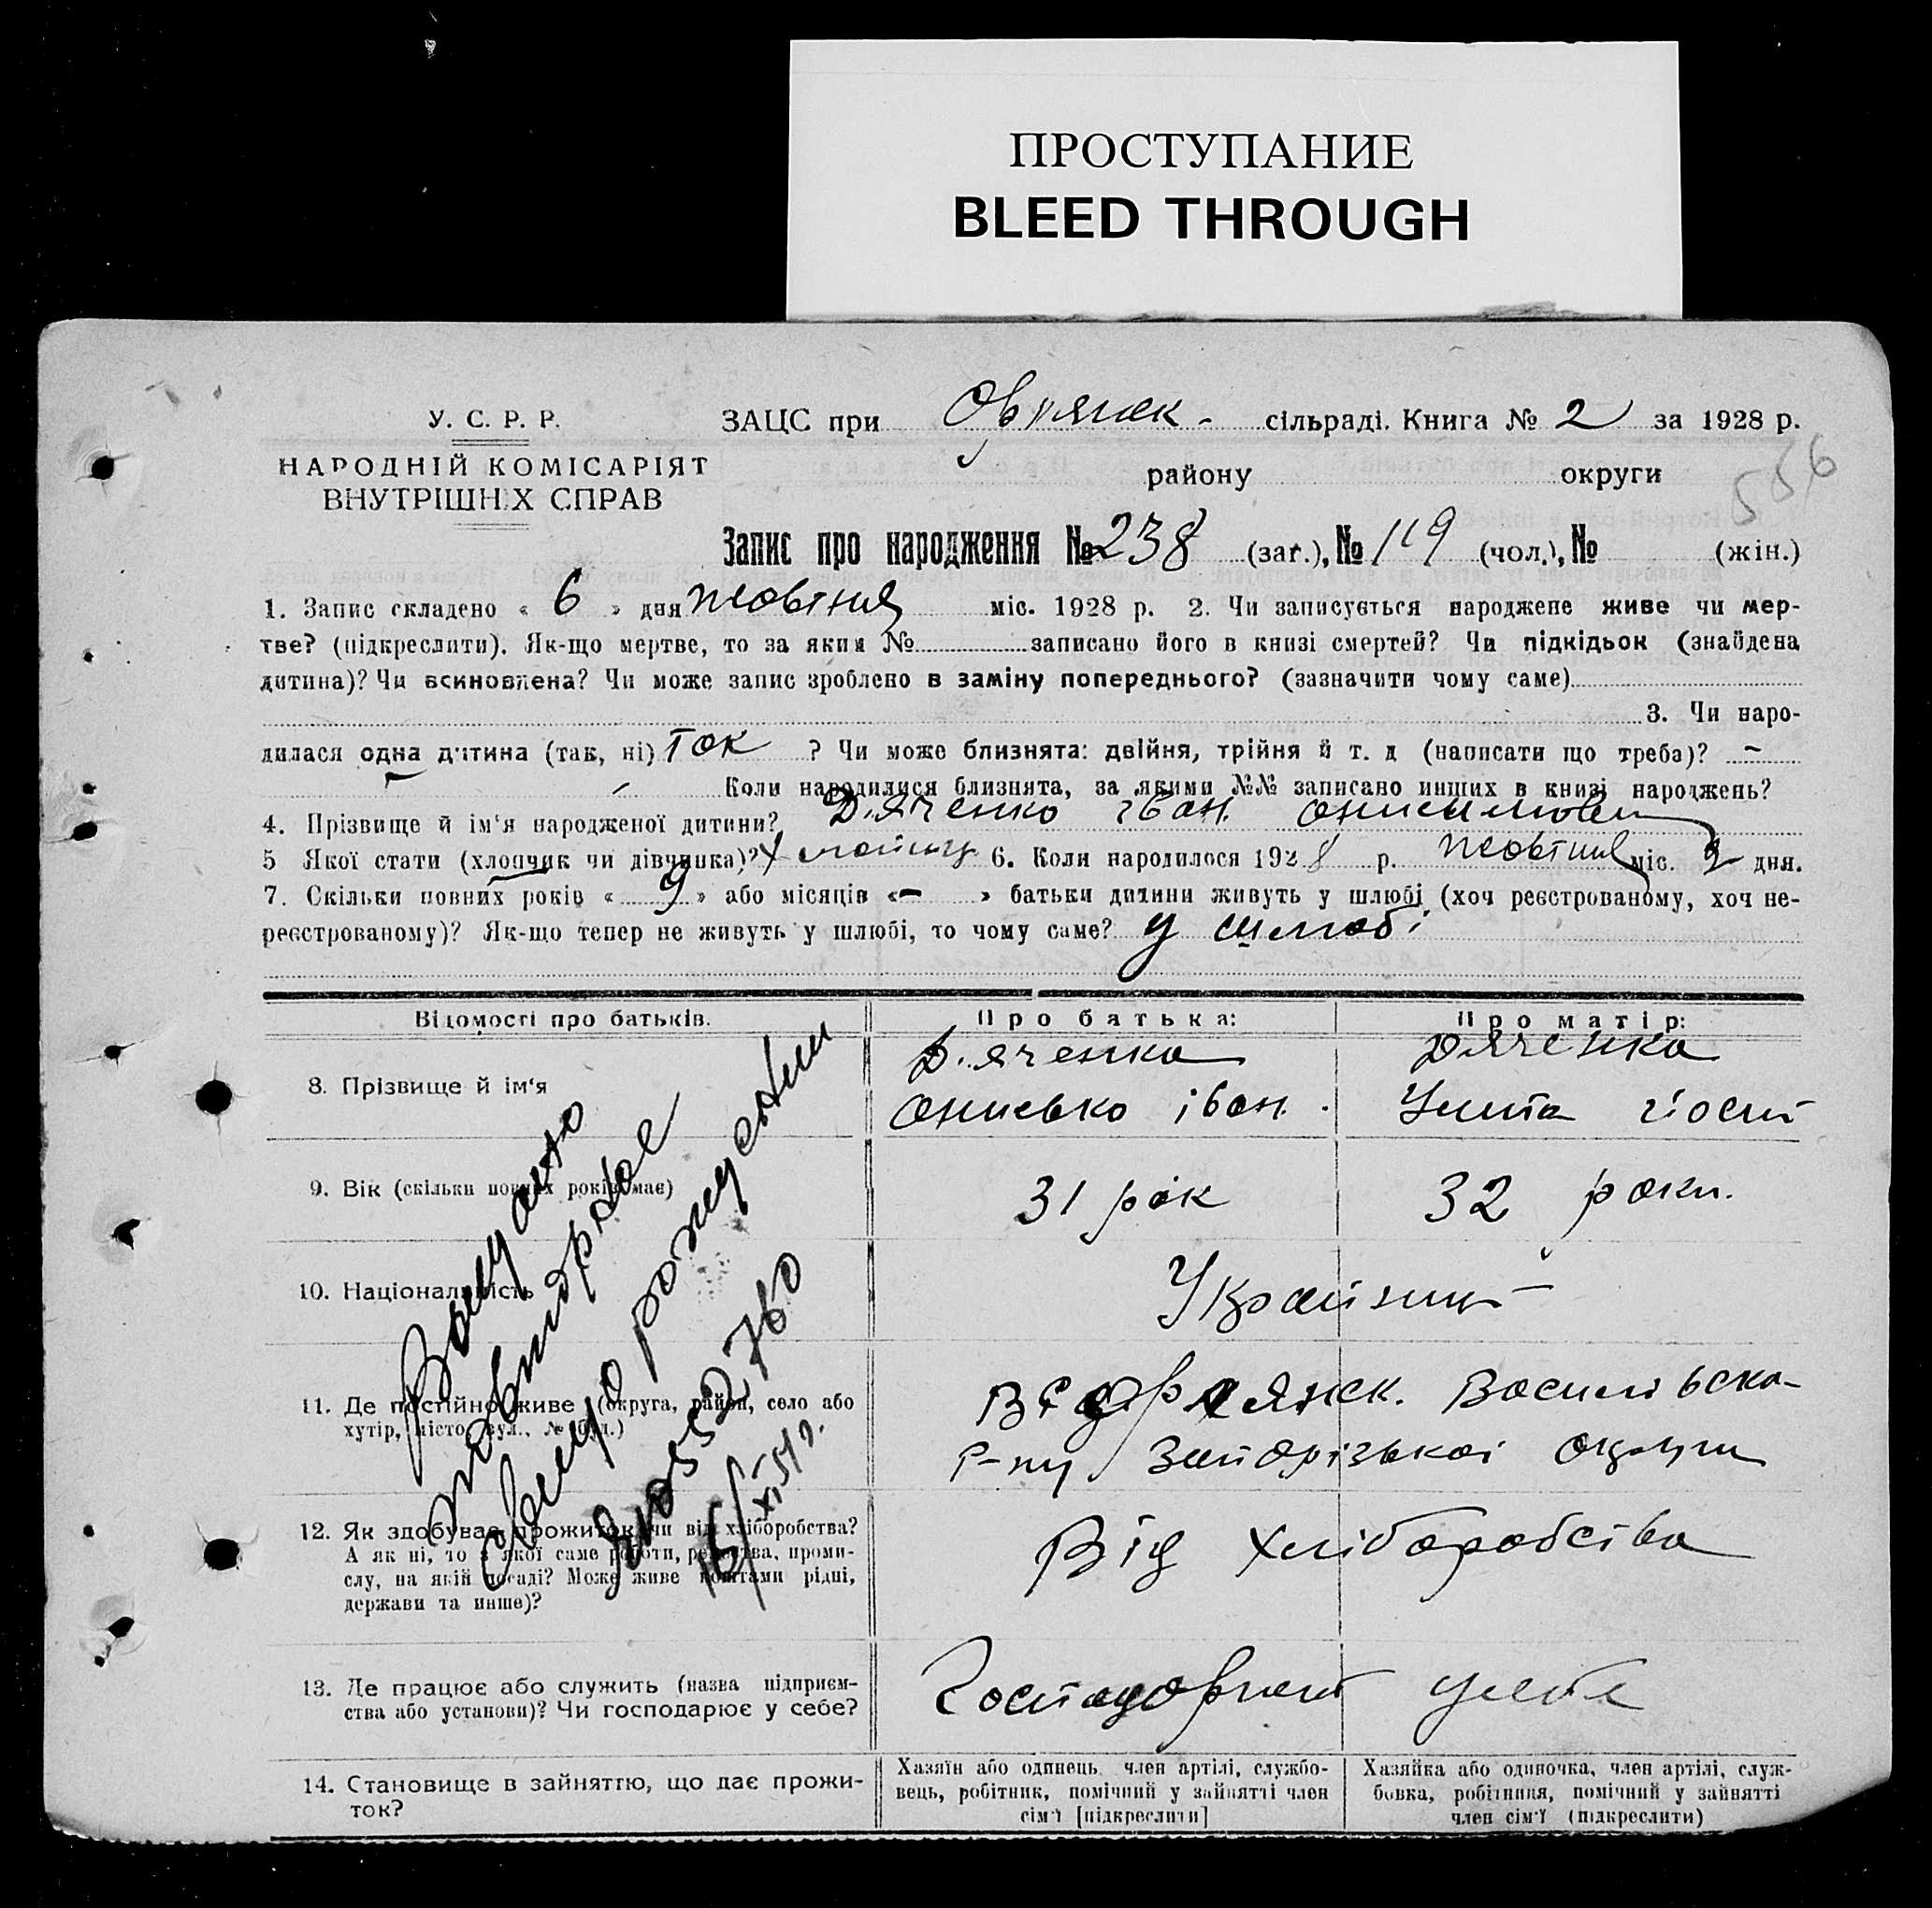 ПРОСТУПАНИЕ
BLEED THROUGH
У. С. Р. Р.
НАРОДНІЙ КОМІСАРІЯТ
ВНУТРІШНІХ СПРАВ
ЗАЦС при сільраді. Книга № 2 за 1928 р.
району округи
556
Запис про народження № 238 (заг.), № 119 (чол.), № (жін.)
1. Запис складено « 6 » дня жовтня міс. 1928 р. 2. Чи записується народжене живе чи мер-
тве? (підкреслити). Як-що мертве, то за яким № записано його в книзі смертей? Чи підкідьок (знайдена
дитина)? Чи всиновлена? Чи може запис зроблено в заміну попереднього? (зазначити чому саме)
3. Чи наро-
дилася одна дитина (так, ні) так ? Чи може близнята: двійня, трійня й т. д (написати що треба)? –
Коли народилися близнята, за якими №№ записано инших в книзі народжень?
4. Прізвище й ім'я народженої дитини? Дяченко Іван
5 Якої стати (хлопчик чи дівчинка)? 6. Коли народилося 1928 р. жовтня міс. 2 дня.
7. Скільки повних років « 9 » або місяців «–» батьки дитини живуть у шлюбі (хоч реєстрованому, хоч не-
реєстрованому)? Як-що тепер не живуть у шлюбі, то чому саме? у шлюбі
Відомості про батьків. Про батька: Про матір:
8. Прізвище й ім'я Дяченко Дяченко
Онисько Іван.
9. Вік (скільки повних років має) 31 рок 32 роки.
10. Національність
11. Де постійно живе (округа, район, село або
хутір, місто, вул., № буд.)
р-ну Запорізької округи
12. Як здобуває прожиток: чи від хліборобства? Від хліборобства
А як ні, то з якої саме роботи, ремества, проми-
слу, на якій посаді? Може живе коштами рідні,
держави та инше)?
13. Де працює або служить (назва підприєм-
ства або установи)? Чи господарює у себе?
14. Становище в зайняттю, що дає прожи-
ток?
Хазяїн або одинець, член артілі, службо-
вець, робітник, помічний у зайнятті член
сім'ї [підкреслити]
Хазяйка або одиночка, член артілі, служ-
бовка, робітниця, помічний у зайнятті
член сім'ї (підкреслити)
Выдано
повторное
свид о рождении